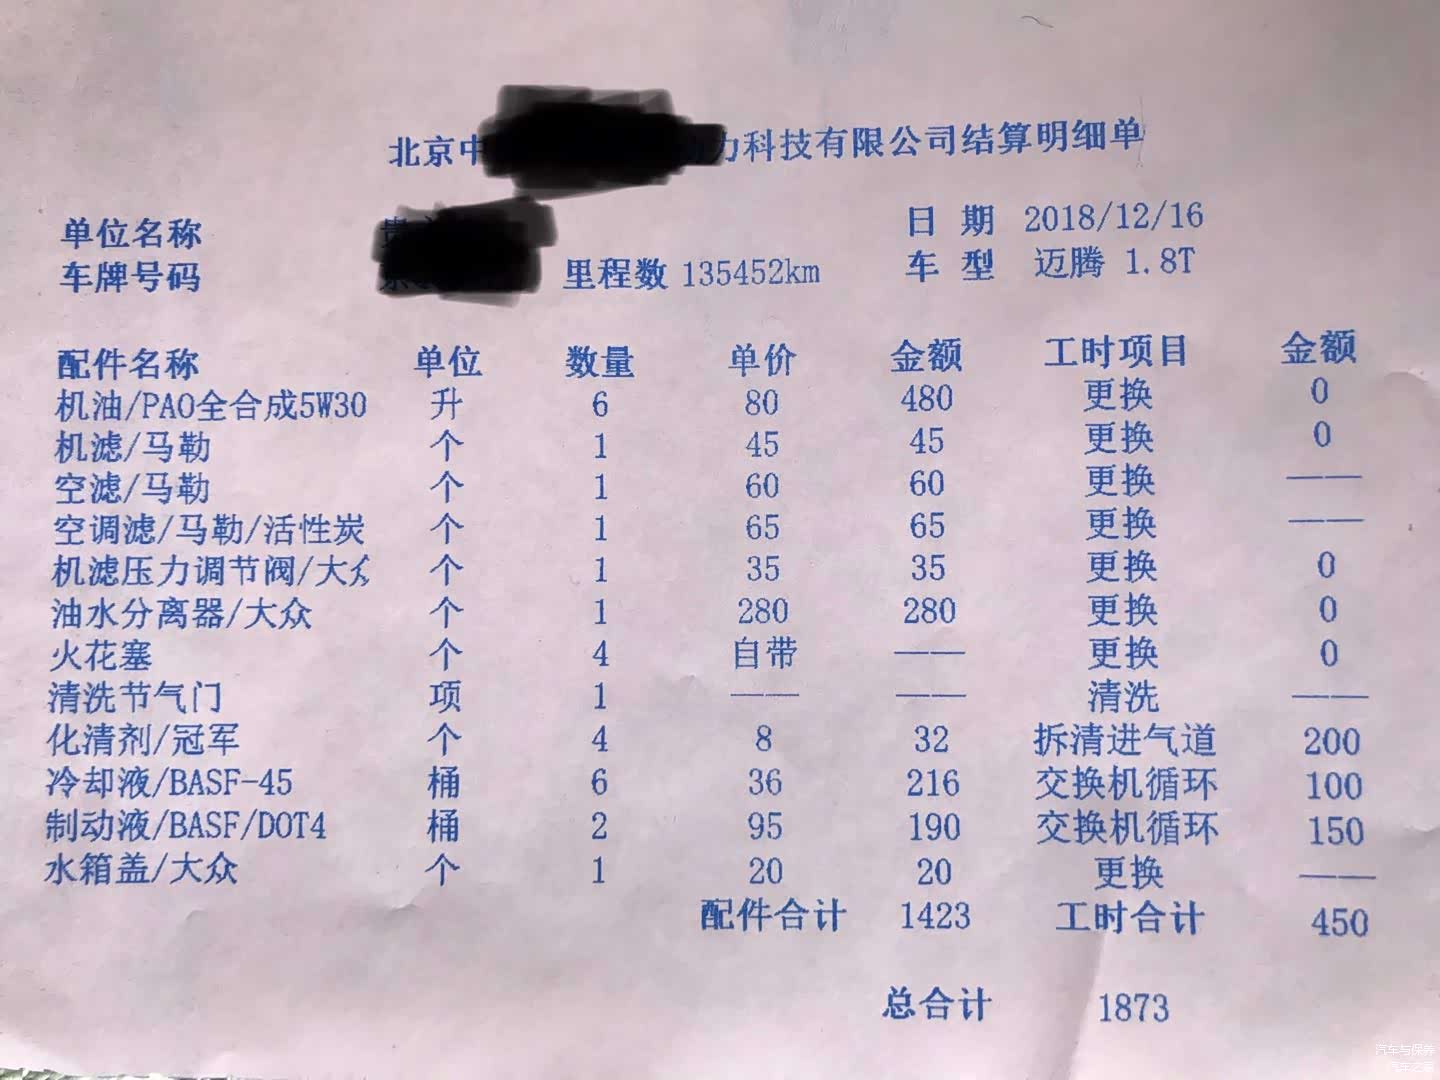 北京中 力科技有限公司结算明细单
单位名称 贵 日 期 2018/12/16
车牌号码 里程数 135452km 车 型 迈腾 1.8T
配件名称 单位 数量 单价 金额 工时项目 金额
机油/PAO全合成5W30 升 6 80 480 更换 0
机滤/马勒 个 1 45 45 更换 0
空滤/马勒 个 1 60 60 更换 ——
空调滤/马勒/活性炭 个 1 65 65 更换 ——
机滤压力调节阀/大众 个 1 35 35 更换 0
油水分离器/大众 个 1 280 280 更换 0
火花塞 个 4 自带 —— 更换 0
清洗节气门 项 1 —— —— 清洗 ——
化清剂/冠军 个 4 8 32 拆清进气道 200
冷却液/BASF-45 桶 6 36 216 交换机循环 100
制动液/BASF/DOT4 桶 2 95 190 交换机循环 150
水箱盖/大众 个 1 20 20 更换 ——
配件合计 1423 工时合计 450
总合计 1873
汽车与保养
汽车之家